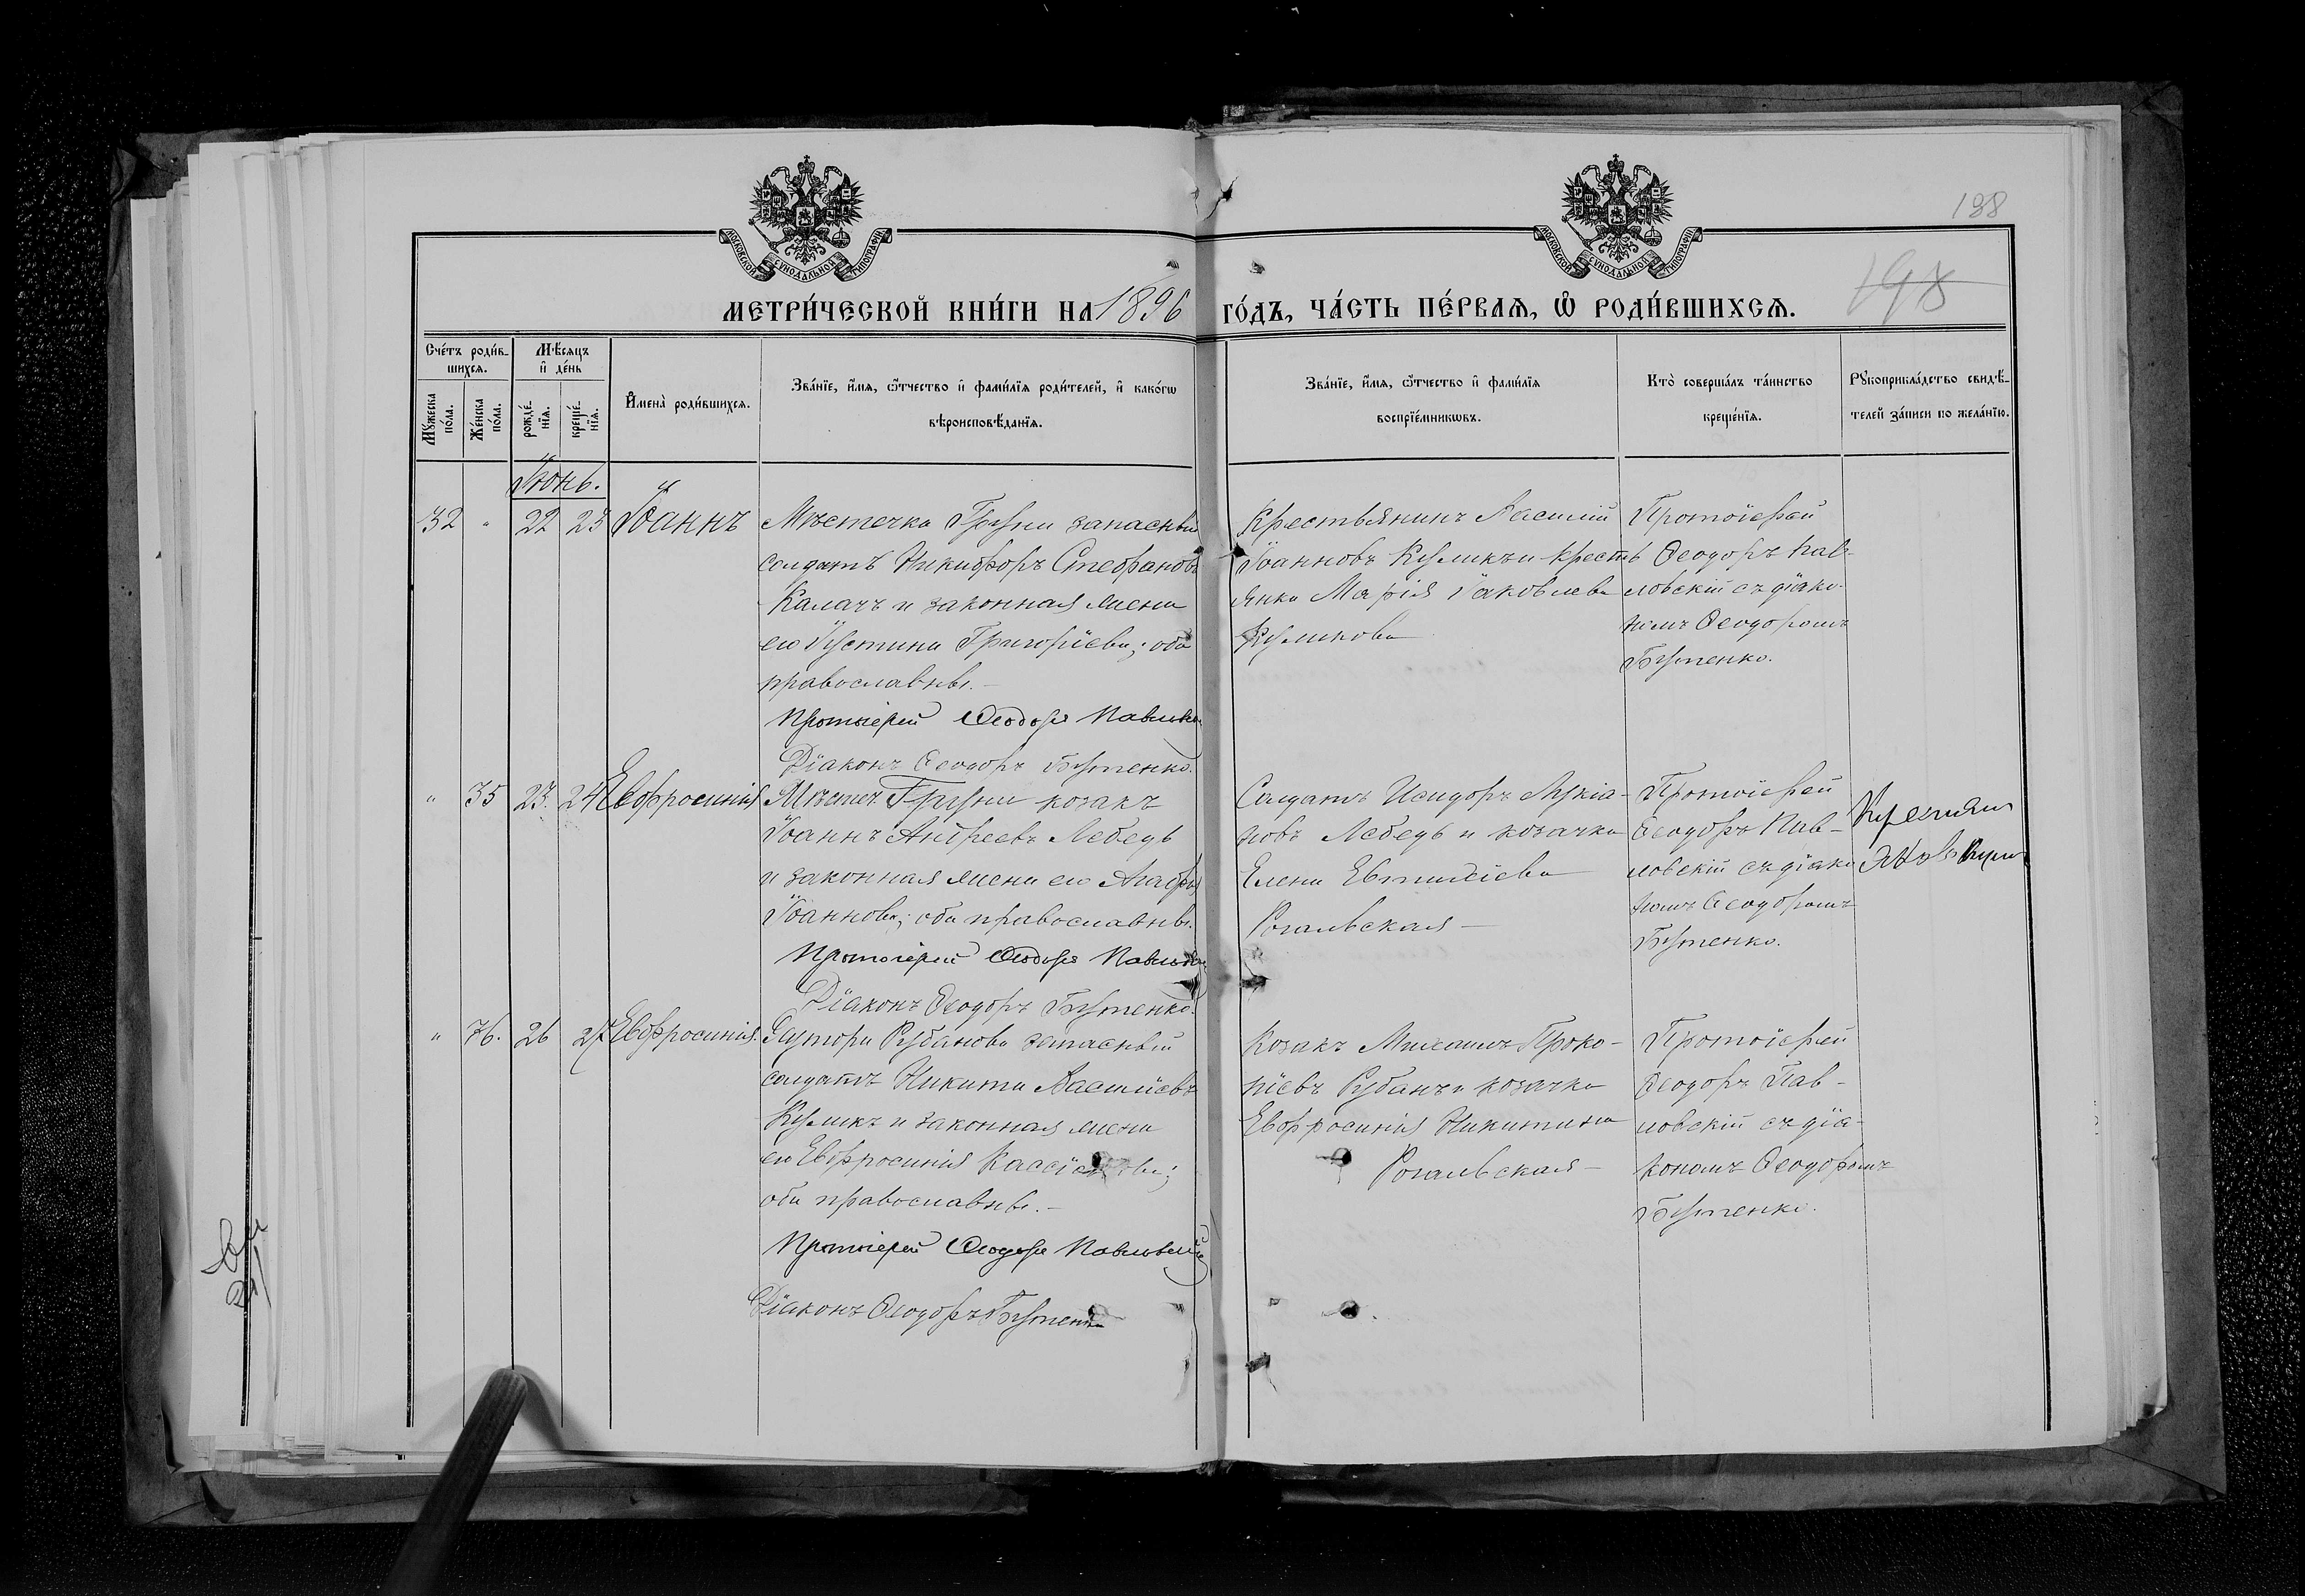 188
198
МОСКОВСКОЙ СѴНОДАЛЬНОЙ ТИПОГРАФІИ
МОСКОВСКОЙ СѴНОДАЛЬНОЙ ТИПОГРАФІИ
МЕТРИ́ЧЕСКОЙ КНИ́ГИ НА 1896 ГО́ДЪ, ЧА́СТЬ ПЕ́РВАѦ, Ѡ҆ РОДИ́ВШИХСѦ.
Сче́тъ роди́в-
шихсѧ.
Мѣ́сѧцъ
и҆ де́нь
Мꙋ́жеска
по́ла.
Же́нска
по́ла.
рожде́-
нїѧ.
креще́-
нїѧ.
И҆мена̀ роди́вшихсѧ.
Зва́нїе, и҆́мѧ, ѻ҆́тчество и҆ фами́лїѧ роди́телей, и҆ како́гѡ
вѣроисповѣ́данїѧ.
Зва́нїе, и҆́мѧ, ѻ҆́тчество и҆ фами́лїѧ
воспрїе́мникѡвъ.
Кто̀ соверша́лъ та́инство
креще́нїѧ.
Рꙋкоприкла́дство свидѣ́-
телей за́писи по жела́нїю.
Іюнь.
32 " 22 23 Іоаннъ
Мѣстечка Груни запасный
солдатъ Никифоръ Стефановъ
Калачъ и законная жена
его Іустина Григоріева; оба
православны.-
Протоіерей Ѳеодоръ Павловскій
Діаконъ Ѳеодоръ Бутенко.
Крестьянинъ Василій
Іоанновъ Куликъ и кресть
янка Марія Іаковлева
Куликова
Протоіерей
Ѳеодоръ Пав-
ловскій съ діако-
номъ Ѳеодоромъ
Бутенко.
" 35 23. 24 Евфросинія
Мѣстеч. Груни козакъ
Іоаннъ Андреевъ Лебедь
и законная жена его Агафія
Іоаннова; оба православны.
Протоіерей Ѳеодоръ Павловскій
Діаконъ Ѳеодоръ Бутенко.
Солдатъ Исидоръ Лукіа-
новъ Лебедь и козачка
Елена Евтихіева
Рогальская -
Протоіерей
Ѳеодоръ Пав-
ловскій съ діако
номъ Ѳеодоромъ
Бутенко.
" 36. 26 27 Евфросинія.
Хутора Рубанова запасный
солдатъ Никита Василіевъ
Куликъ и законная жена
его Евфросинія
оба православны.-
Протоіерей Ѳеодоръ Павловскій
Діаконъ Ѳеодоръ Бутенко
Козакъ Михаилъ Проко-
піевъ Рубанъ и козачка
Евфросинія Никитина
Рогальская -
Протоіерей
Ѳеодоръ Пав-
ловскій съ діа-
кономъ Ѳеодоромъ
Бутенко.